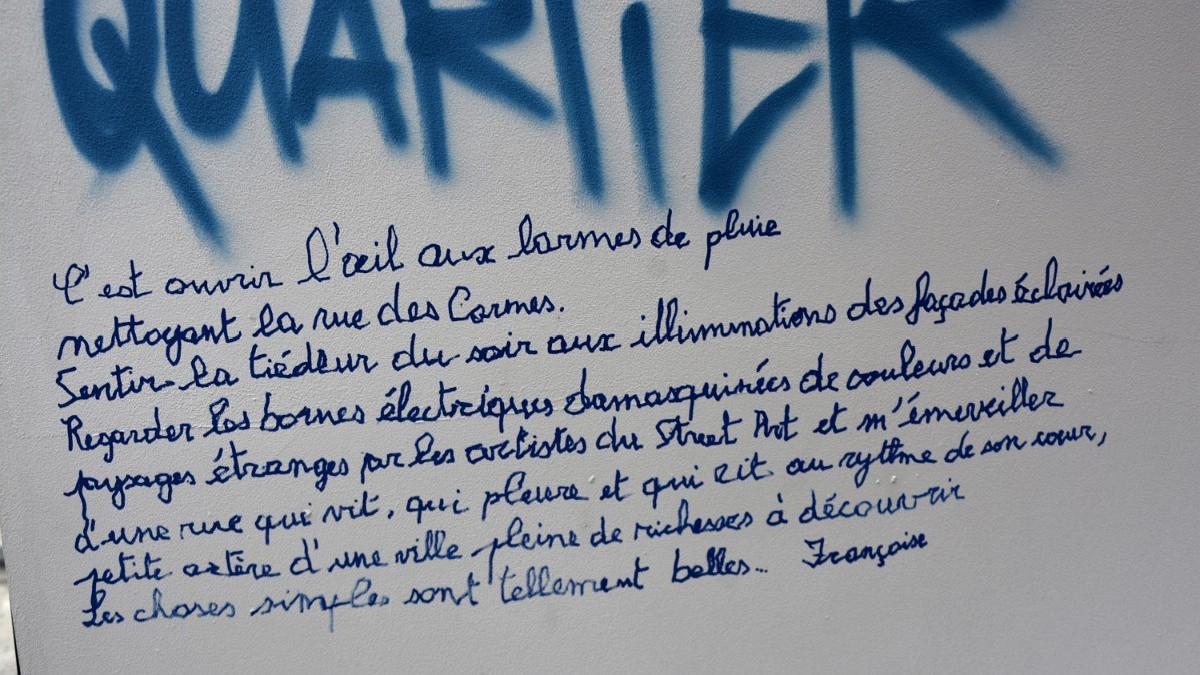 QUARTIER
C'est ouvrir l'œil aux larmes de pluie
nettoyant la rue des Carmes.
Sentir la tiédeur du soir aux illiminations des façades éclairées
Regarder les bornes électriques damasquinées de couleurs et de
paysages étranges par les artistes du Street Art et m'émerveiller
d'une rue qui vit, qui pleure et qui rit au rythme de son cœur,
petite artère d'une ville pleine de richesses à découvrir
Les choses simples sont tellement belles... Françoise